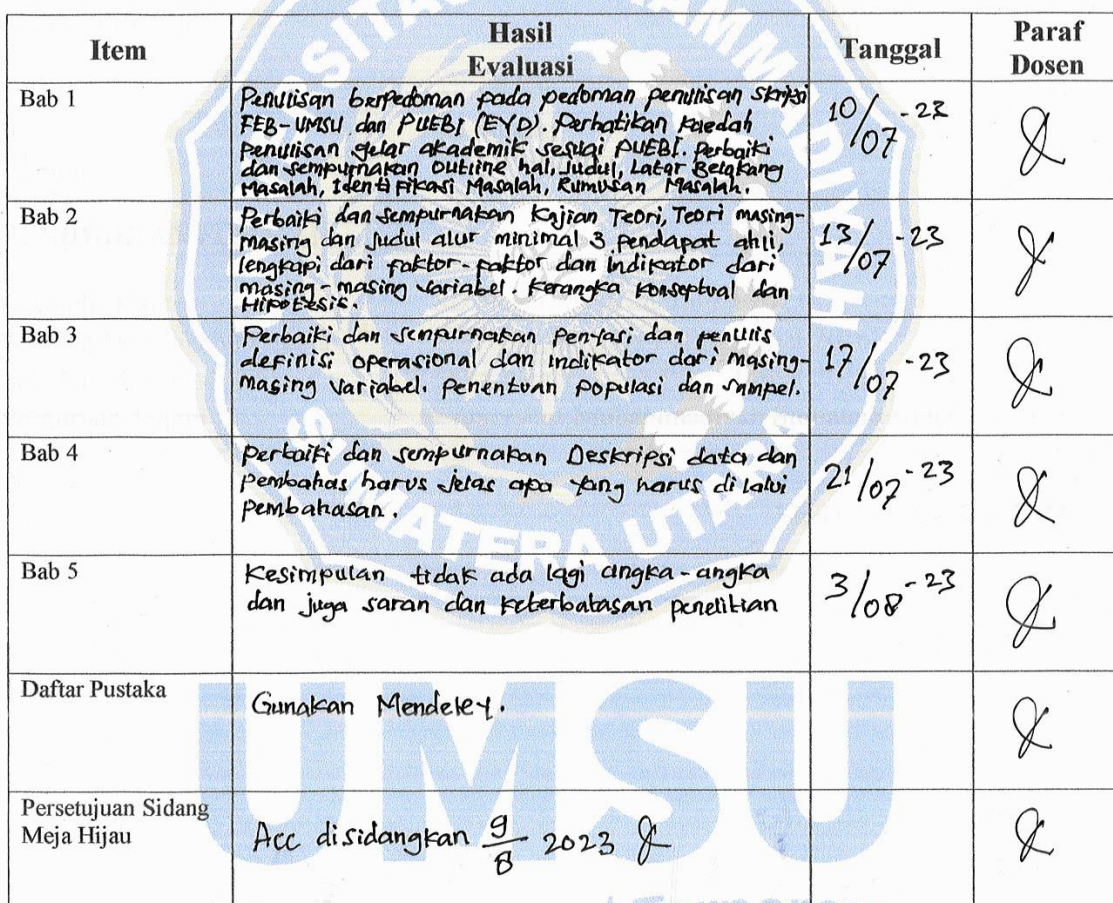 Item
Hasil
Evaluasi
Tanggal
Paraf
Dosen
Bab 1
Penulisan berpedoman pada pedoman penulisan skripsi
FEB-UMSU dan PUEBI (EYD). Perhatikan kaedah
penulisan gelar akademik sesuai PUEBI. Perbaiki
dan sempurnakan outline hal, Judul, Latar Belakang
Masalah, Identifikasi Masalah, Rumusan Masalah.
10/07-23
Bab 2
Perbaiki dan sempurnakan Kajian Teori, Teori masing-
masing dan Judul alur minimal 3 pendapat ahli,
lengkapi dari faktor-faktor dan indikator dari
masing-masing variabel. Kerangka Konseptual dan
Hipotesis.
13/07-23
Bab 3
Perbaiki dan sempurnakan dan penulis
definisi operasional dan indikator dari masing-
masing variabel. Penentuan populasi dan sampel.
17/07-23
Bab 4
Perbaiki dan sempurnakan Deskripsi data dan
Pembahas harus jelas apa yang harus di lalui
pembahasan.
21/07-23
Bab 5
Kesimpulan tidak ada lagi angka-angka
dan juga saran dan keterbatasan penelitian
3/08-23
Daftar Pustaka
Gunakan Mendeley.
Persetujuan Sidang
Meja Hijau
Acc disidangkan 9/8 2023
UMSU
SUMATERA UTARA